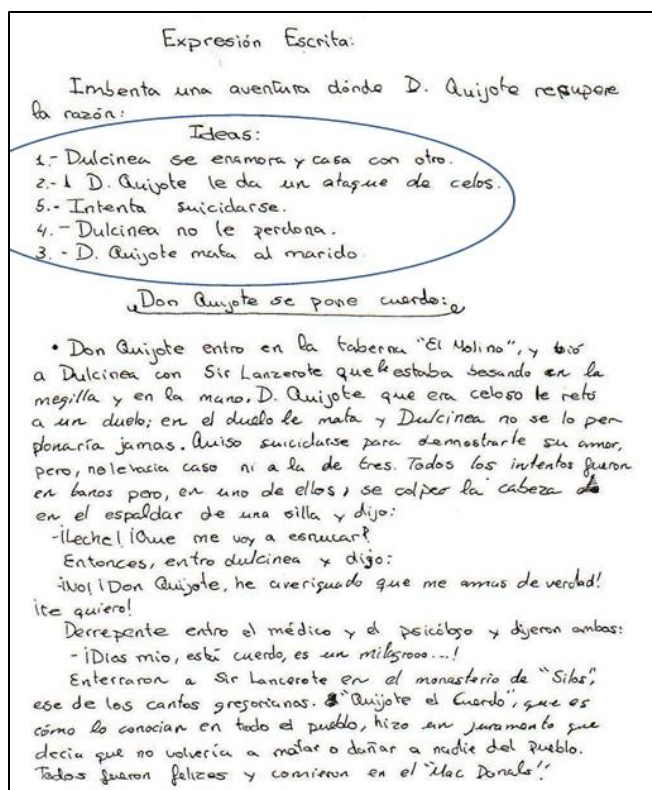 Expresión Escrita:
Imbenta una aventura dónde D. Quijote recupere
la razón:
Ideas:
1.- Dulcinea se enamora y casa con otro.
2.- A D. Quijote le da un ataque de celos.
5.- Intenta suicidarse.
4.- Dulcinea no le perdona.
3.- D. Quijote mata al marido.
Don Quijote se pone cuerdo:
• Don Quijote entro en la taberna "El Molino", y bió
a Dulcinea con Sir Lanzerote que le estaba besando en la
megilla y en la mano. D. Quijote que era celoso le retó
a un duelo; en el duelo le mata y Dulcinea no se lo per
donaría jamas. Quiso suicidarse para demostrarle su amor,
pero, no le vacia caso ni a la de tres. Todos los intentos fueron
en banos pero, en uno de ellos, se golpeo la cabeza
en el espaldar de una silla y dijo:
-¡Leche! ¡Que me voy a esnucar!
Entonces, entro dulcinea y digo:
-¡No! ¡Don Quijote, he averiguado que me amas de verdad!
¡te quiero!
Derrepente entro el médico y el psicólogo y dijeron ambos:
- ¡Dios mio, está cuerdo, es un milagrooo...!
Enterraron a Sir Lancerote en el monasterio de "Silos",
ese de los cantos gregorianos. "Quijote el Cuerdo", que es
cómo lo conocian en todo el pueblo, hizo un juramento que
decia que no volvería a matar o dañar a nadie del pueblo.
Todos fueron felizes y comieron en el "Mac Donals".